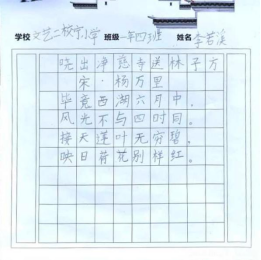 学校 文艺二校中小学 班级 一年四班 姓名 李若溪
晓出净慈寺送林子方
宋·杨万里
毕竟西湖六月中,
风光不与四时同。
接天莲叶无穷碧,
映日荷花别样红。